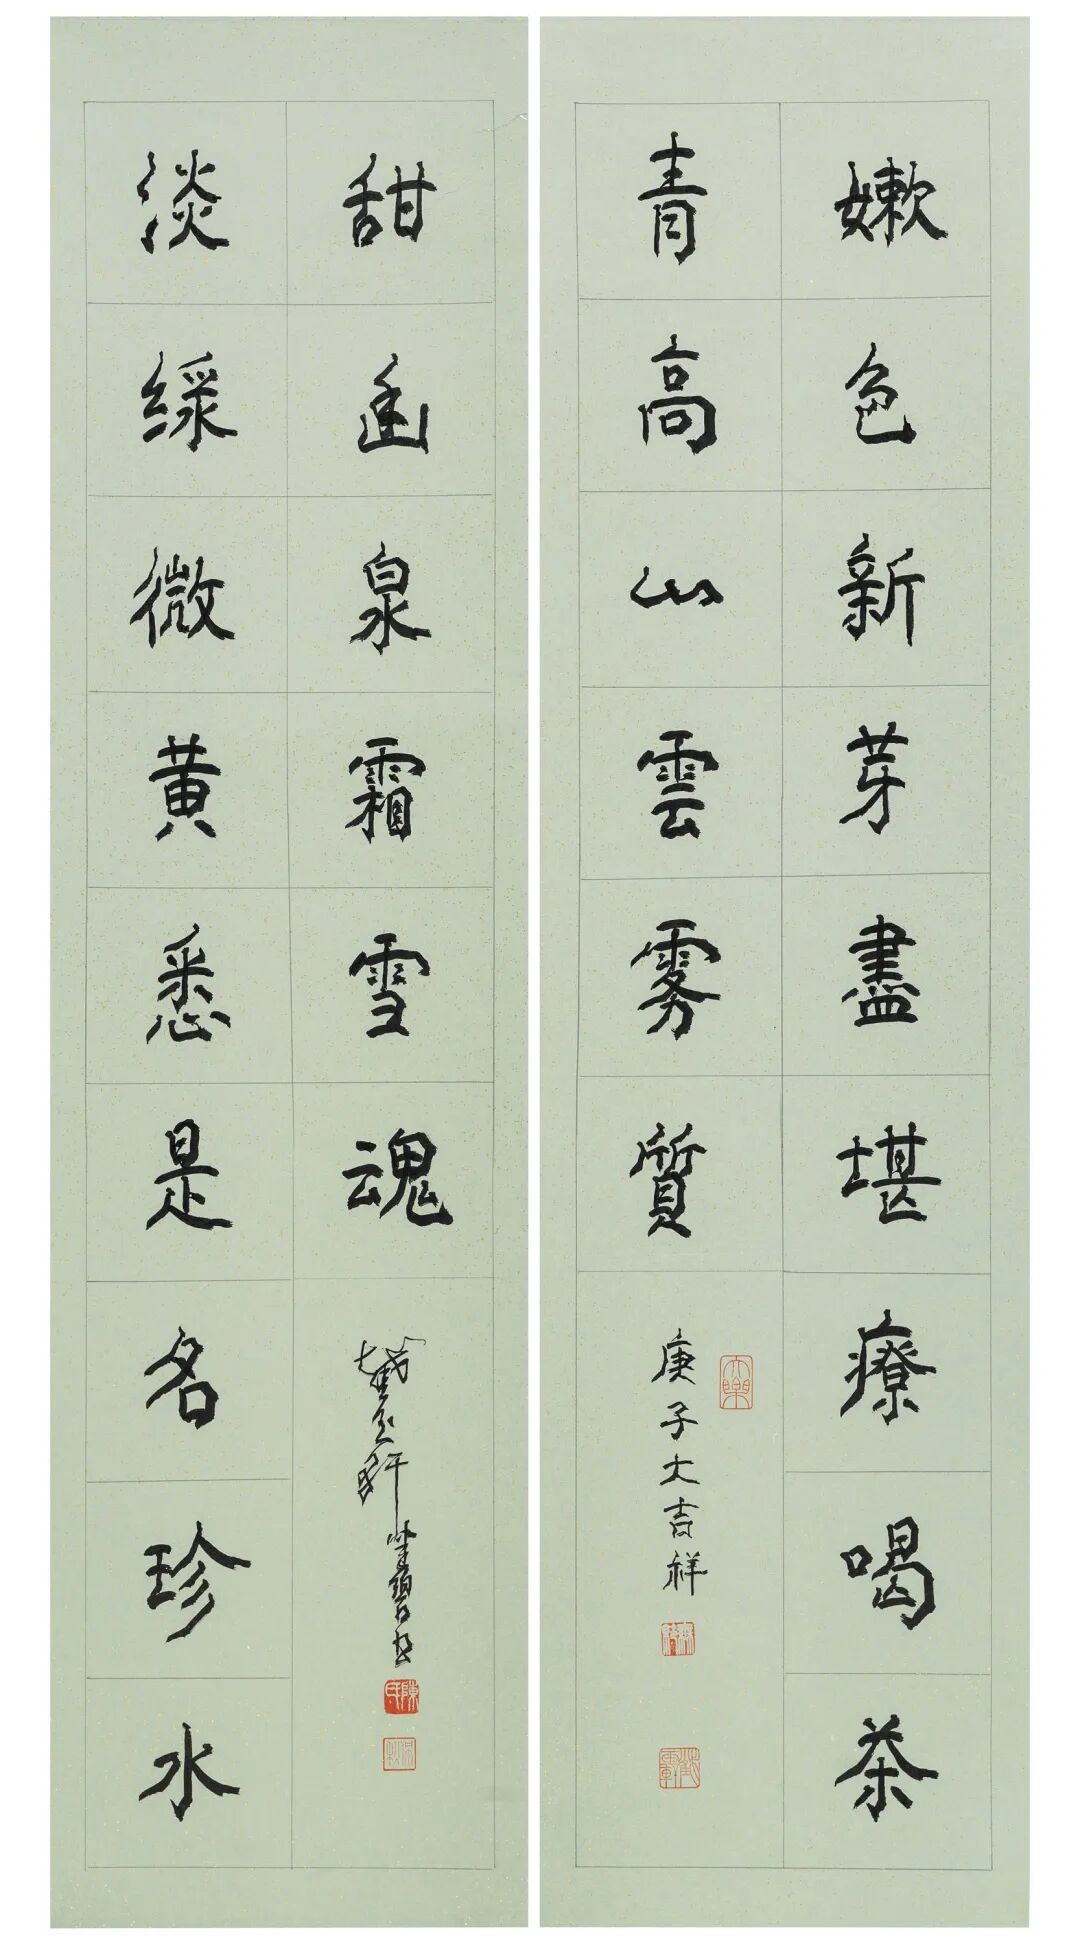 嫰色新芽盡堪療喝茶
青高山雲霧質
庚子大吉祥
大樂
淡緑微黄悉是名珍水
甜幽泉霜雪魂
陳氏